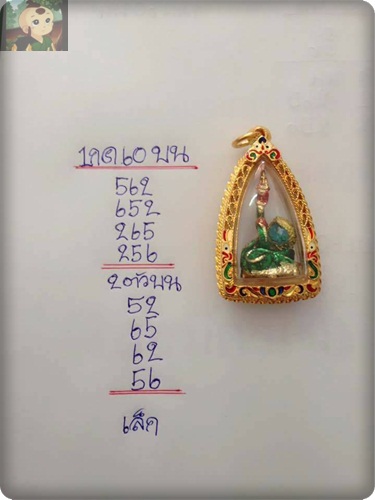 บน
562
652
265
256
2ตัวบน
52
65
62
56
เล็ก